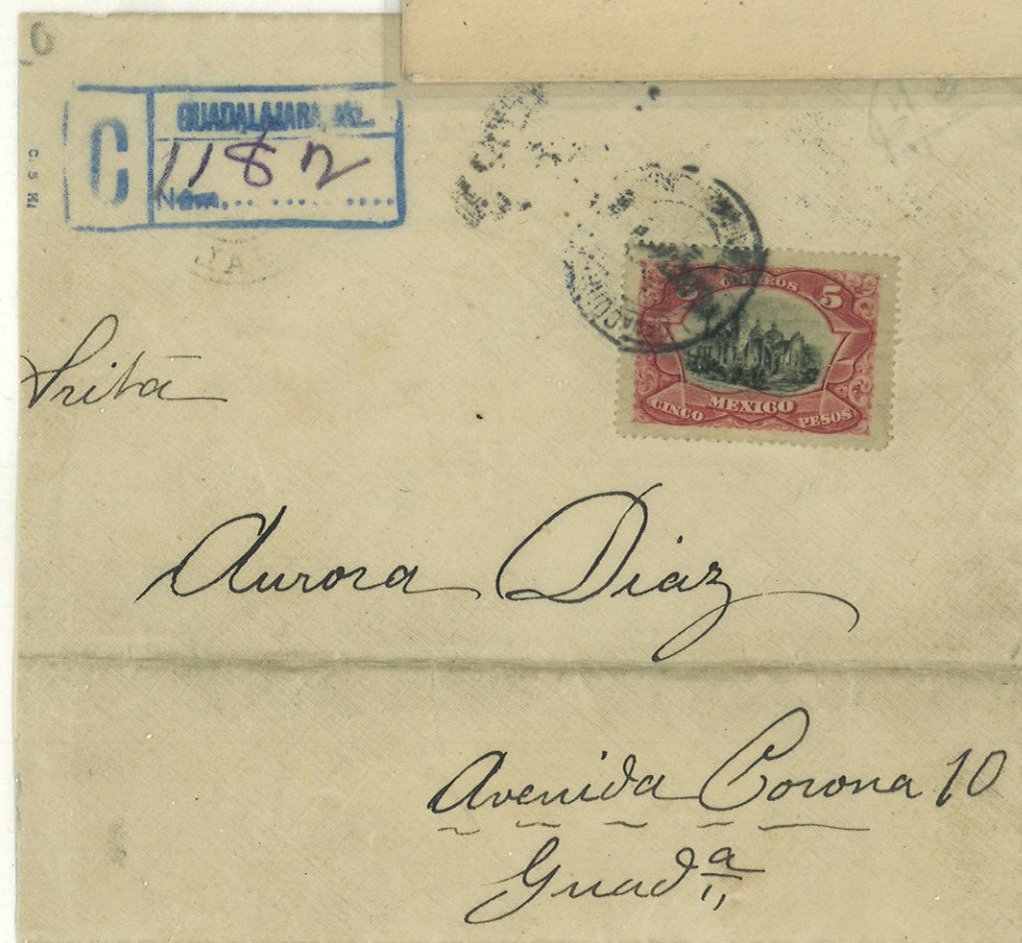 C
GUADALAJARA, JAL.
1182
Núm.
CORREOS
5
MEXICO
CINCO PESOS
Srita
Aurora Diaz
Avenida Corona 10
Guadª